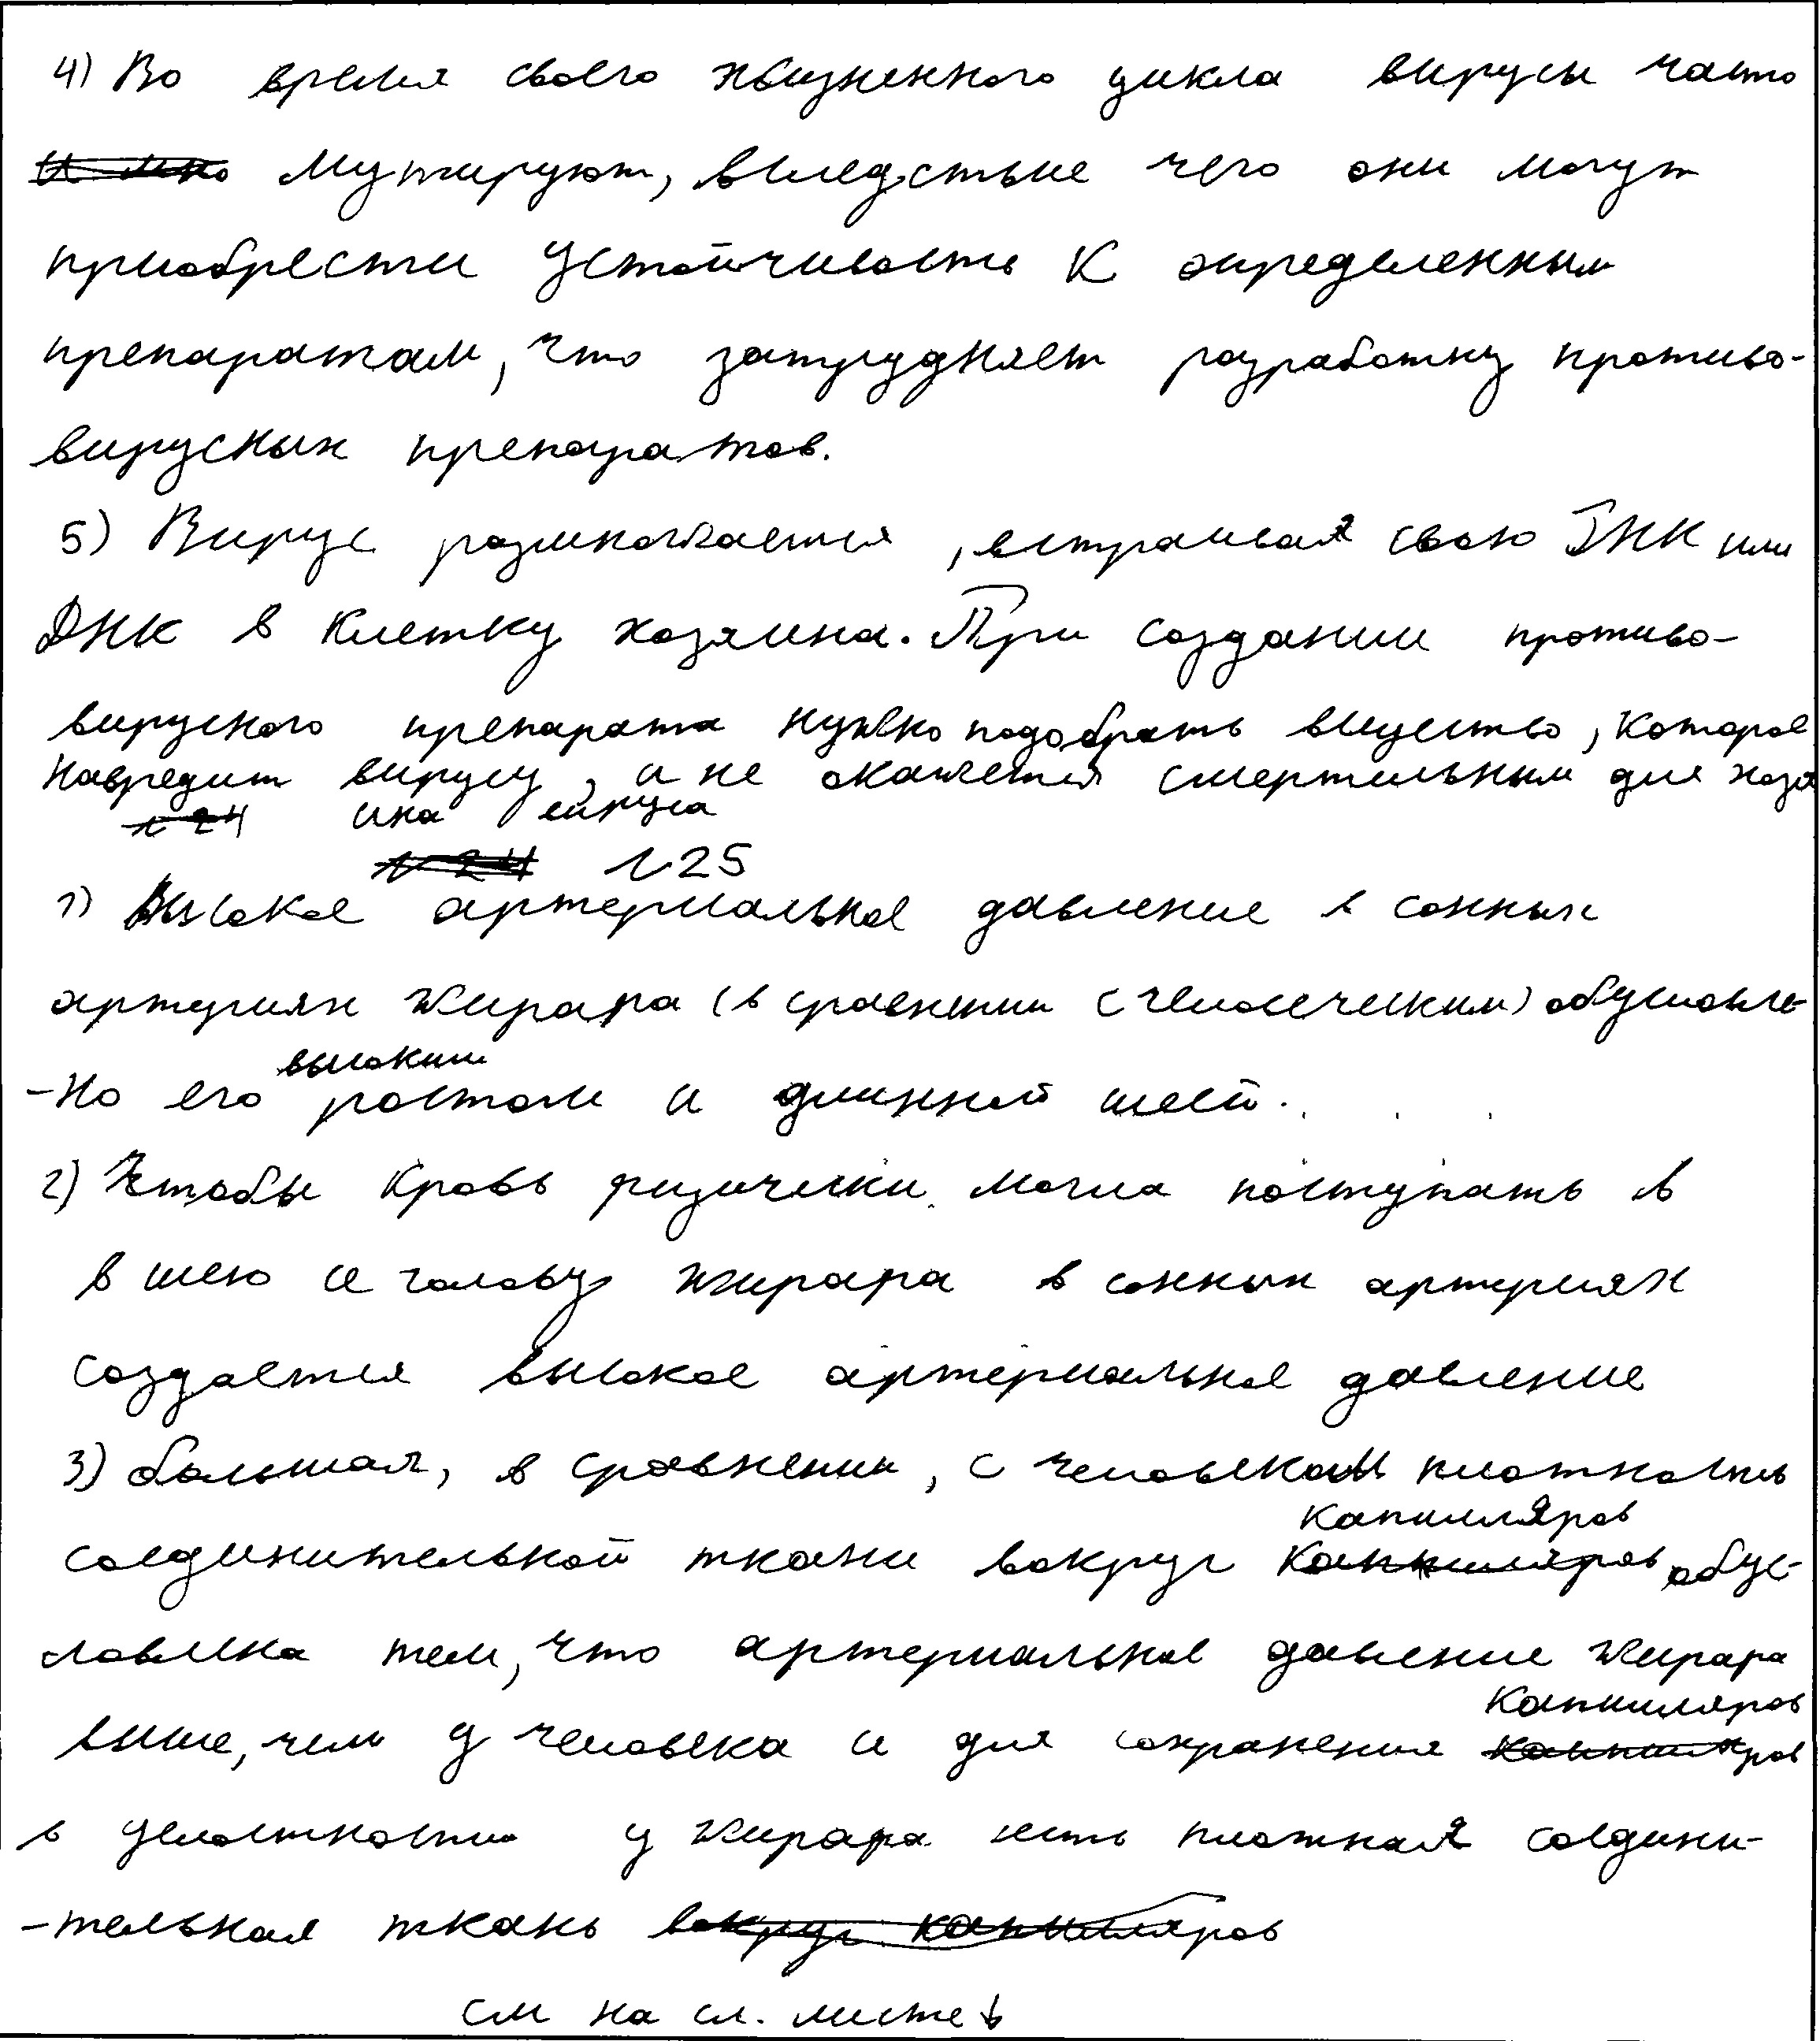 4) Во время своего жизненного цикла вирусы часто
мутируют, вследствие чего они могут
приобрести устойчивость к определенным
препаратам, что затрудняет разработку противо-
вирусных препаратов.
5) Вирус размножается, встраивая свою РНК или
ДНК в клетку хозяина. При создании противо-
вирусного препарата нужно подобрать вещество, которое
навредит вирусу, а не окажется смертельным для хозя
ина вируса
№25
1) Высокое артериальное давление в сонных
артериях жирафа (в сравнении с человеческим) обусловле-
-но его высоким ростом и длинной шеей.
2) Чтобы кровь физически могла поступать в
в шею и голову жирафа в сонных артериях
создается высокое артериальное давление
3) большая, в сравнении, с человеком плотность
соединительной ткани вокруг капилляров обус-
ловлена тем, что артериальное давление жирафа
выше, чем у человека и для сохранения капилляров
в целостности у жирафа есть плотная соедини-
-тельная ткань
см на сл. листе ↓